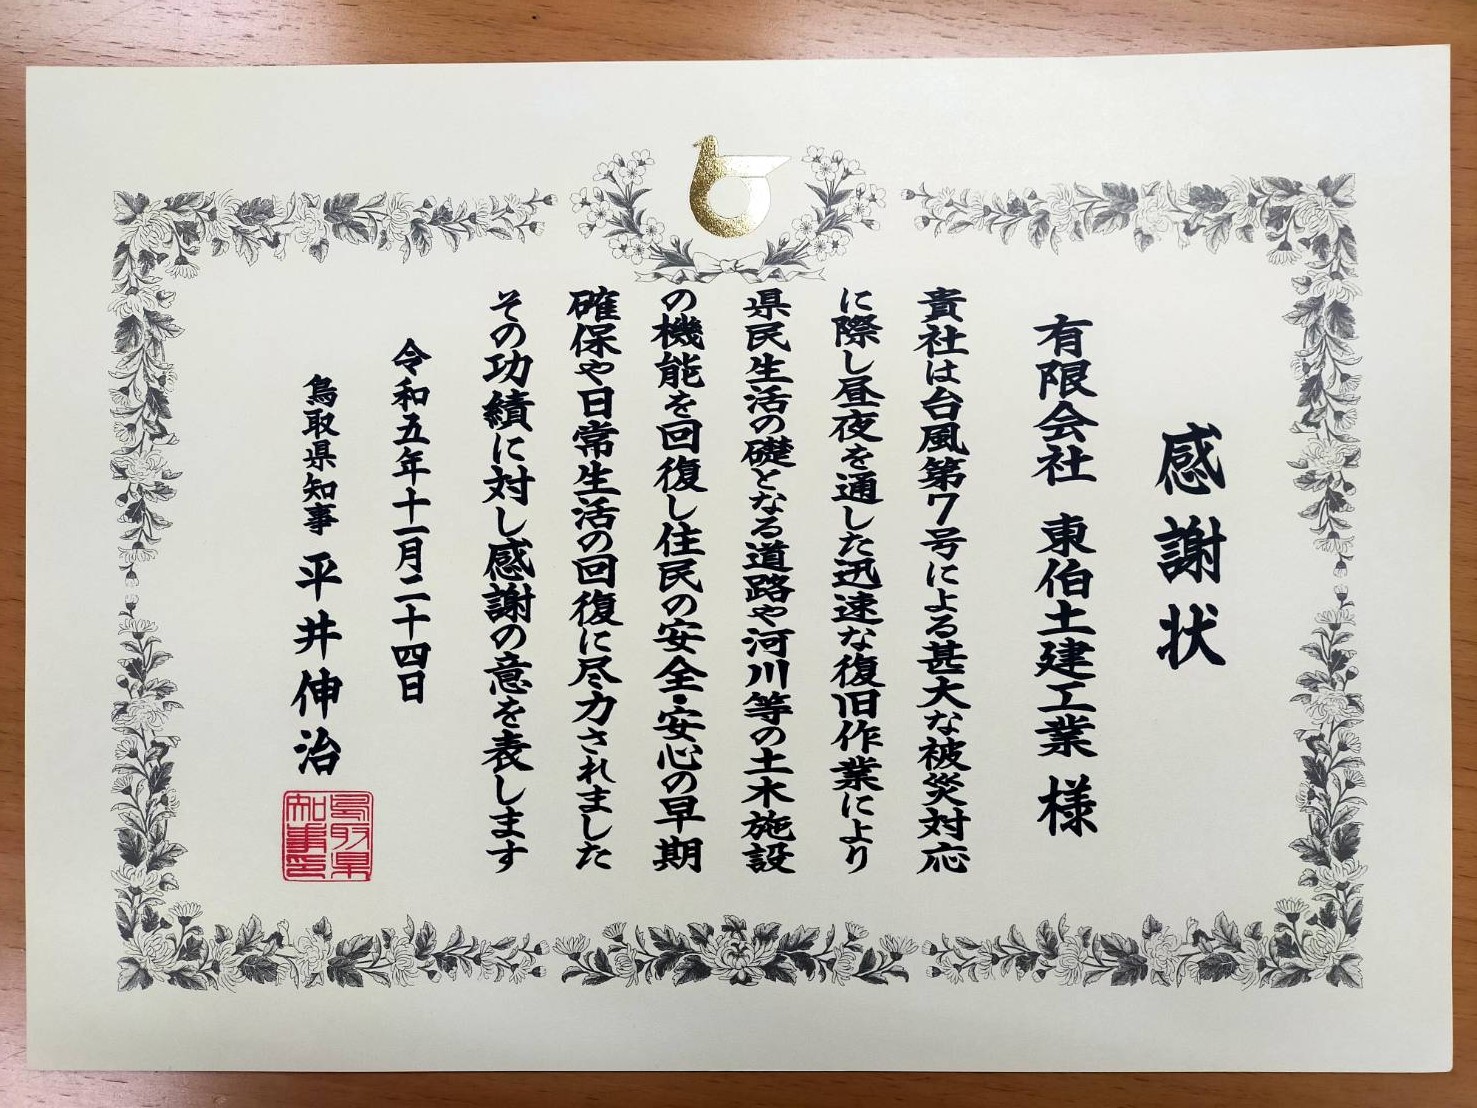 感謝状
有限会社 東伯土建工業 様
貴社は台風第7号による甚大な被災対応
に際し昼夜を通した迅速な復旧作業により
県民生活の礎となる道路や河川等の土木施設
の機能を回復し住民の安全・安心の早期
確保や日常生活の回復に尽力されました
その功績に対し感謝の意を表します
令和五年十一月二十四日
鳥取県知事 平井伸治
鳥取県
知事印